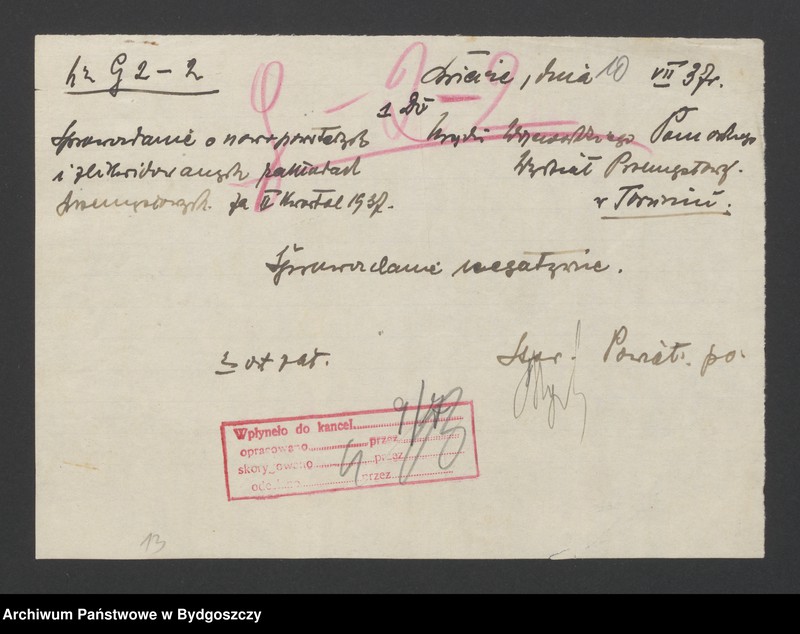 Nr G 2-2
Świecie, dnia 10 VII 37r.
2-2-2
Do
Sprawozdanie o nowopowstałych
i zlikwidowanych zakładach
przemysłowych za II kwartał 1937.
Urzędu Wojewódzkiego Pomorskiego
Wydział Przemysłowy
w Toruniu.
Sprawozdanie negatywne.
Star. Powiat. po.
Wpłynęło do kancel.
opracowano przez
skory_owano przez
ode przez
13
Archiwum Państwowe w Bydgoszczy